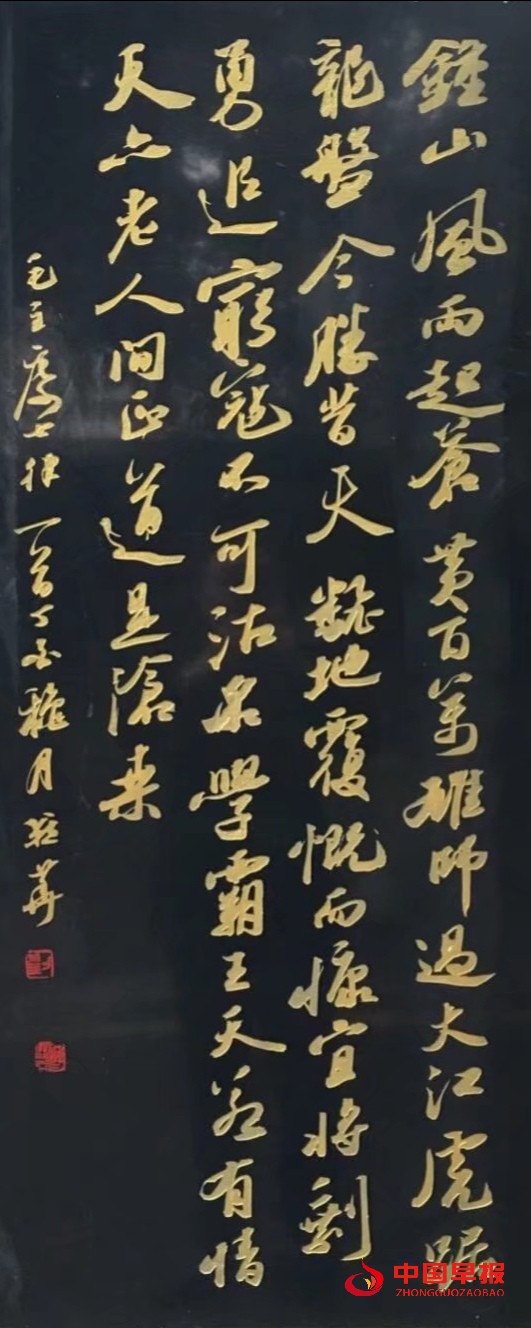 鍾山風雨起蒼黄百萬雄師過大江虎踞
龍盤今勝昔天翻地覆慨而慷宜將剩
勇追窮寇不可沽名學霸王天若有情
天亦老人間正道是滄桑
毛主席七律一首丁酉穐月
中国早报
ZHONGGUOZAOBAO